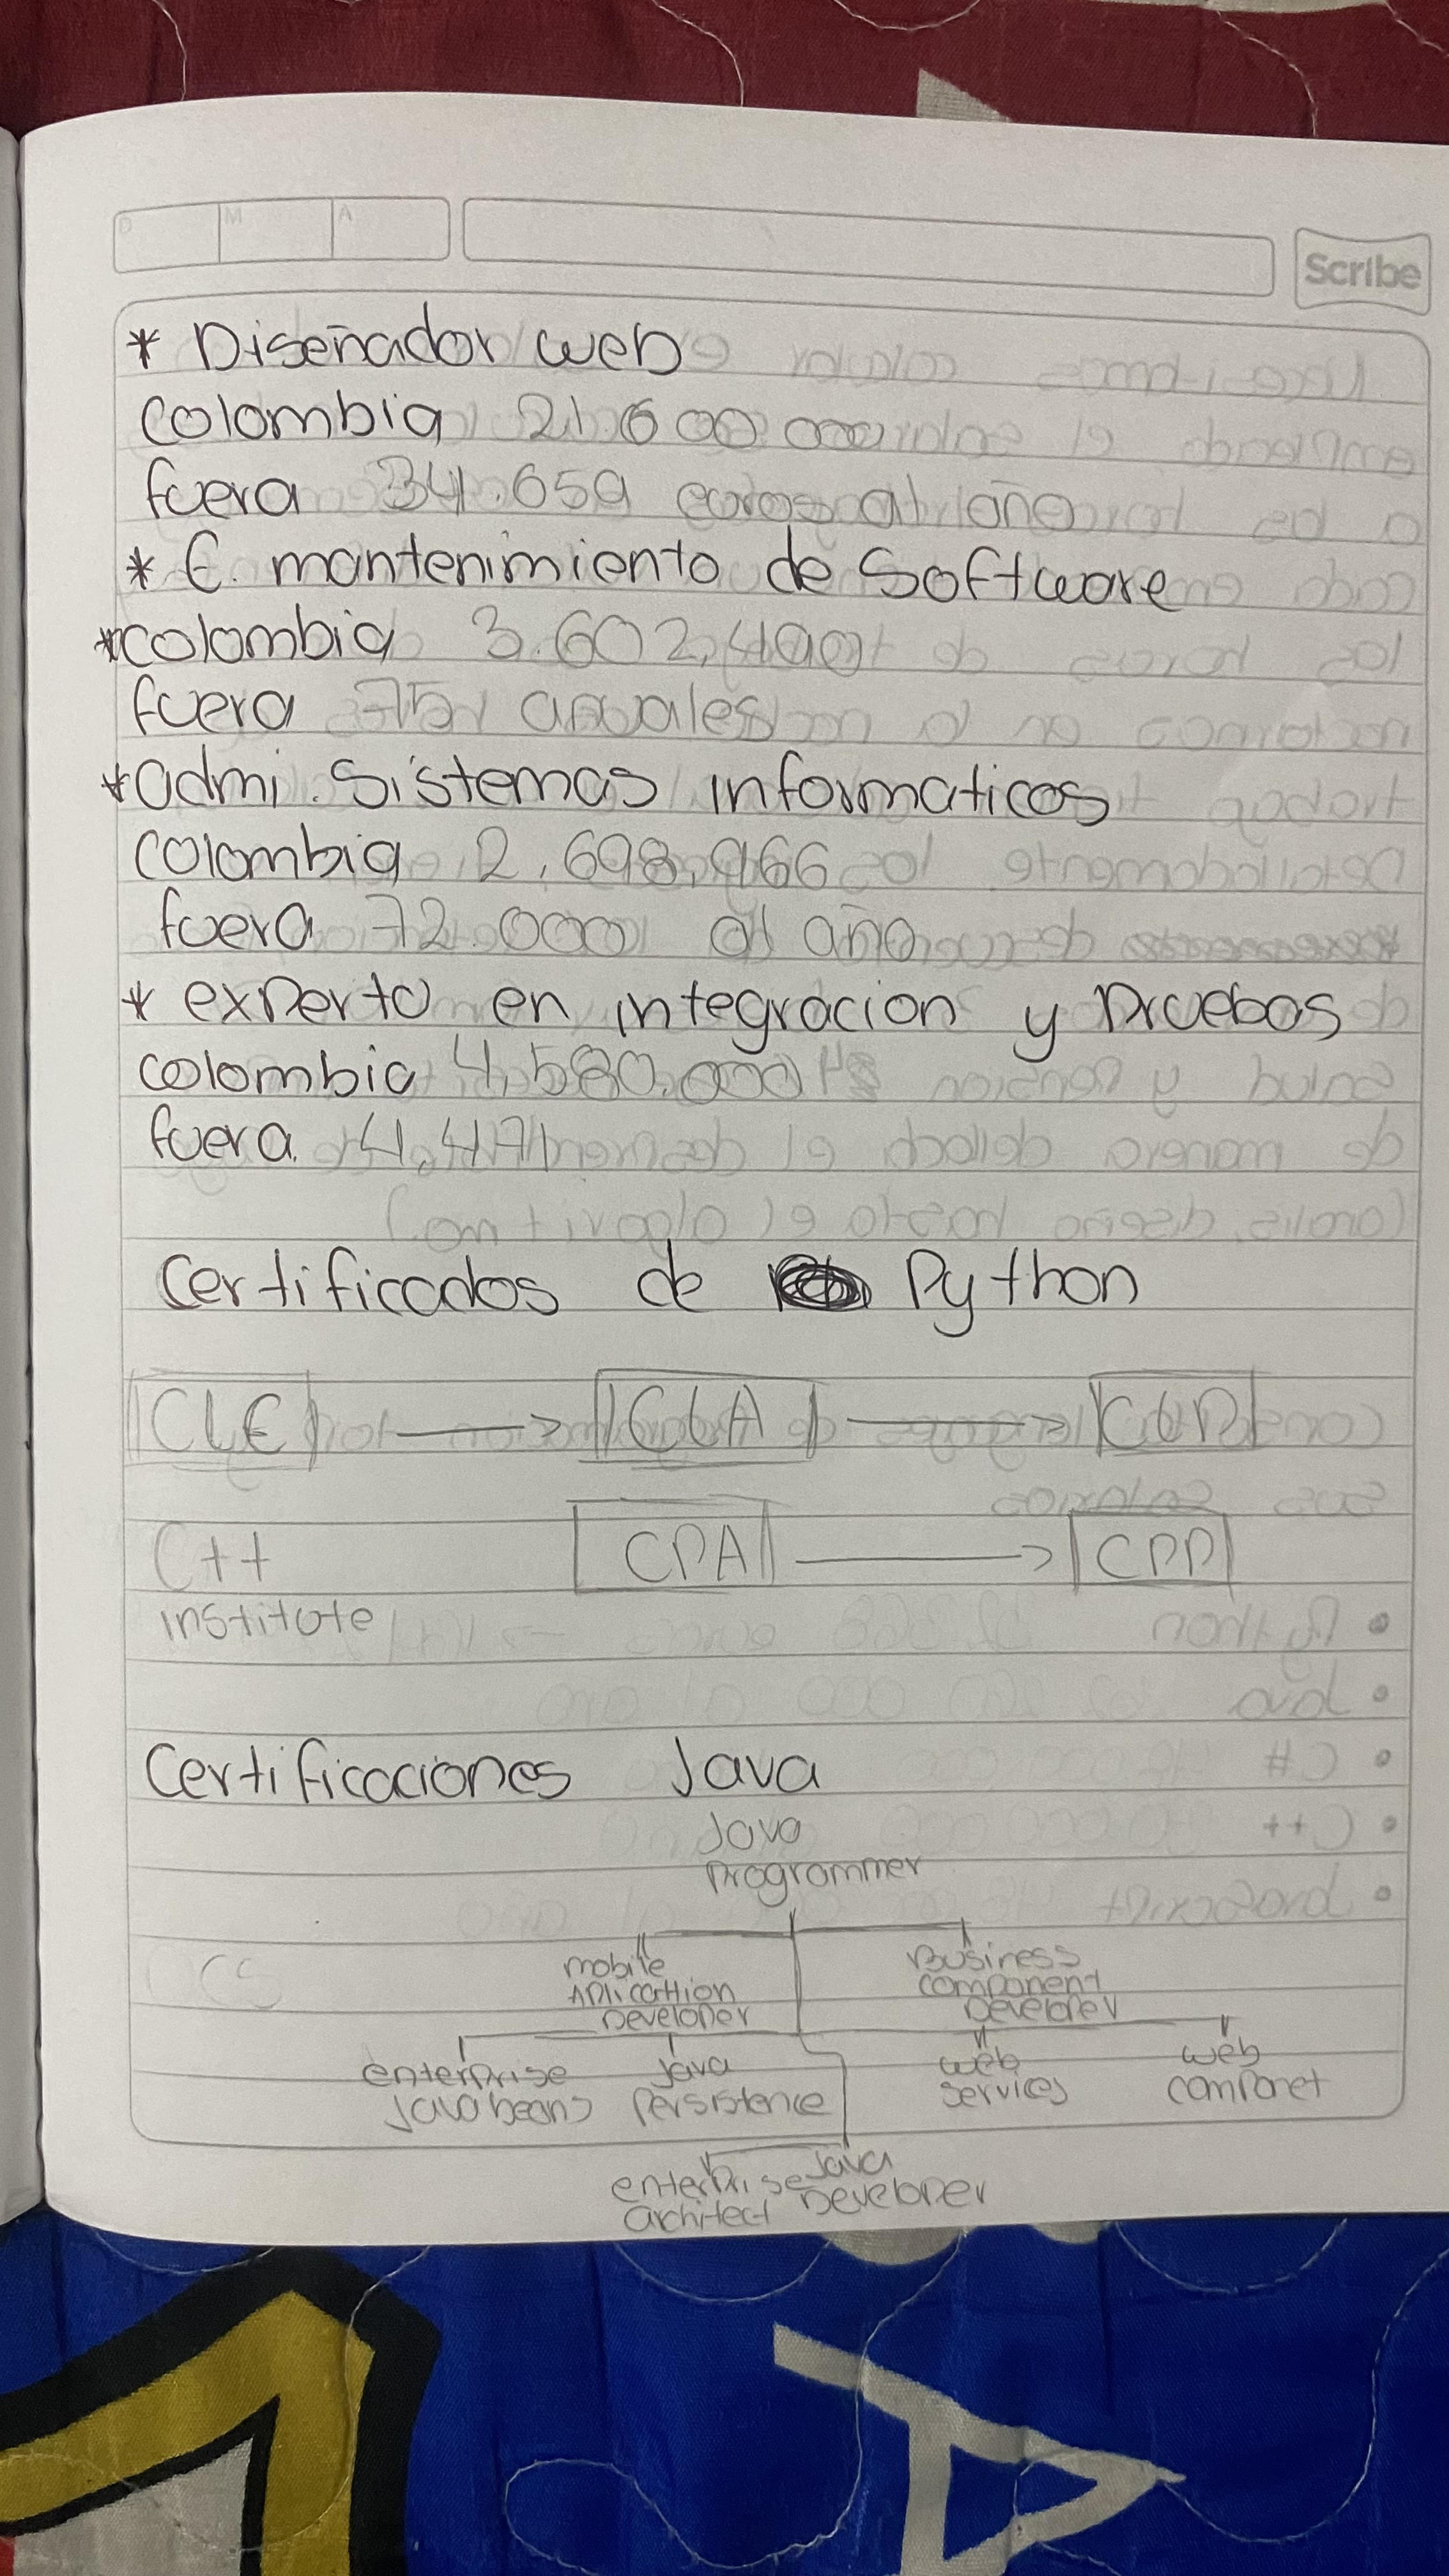 D M A
Scribe
* Diseñador web
Colombia 21.600.000
fuera 34.659 euros al año
* E. mantenimiento de Software
*Colombia 3.602,490
fuera 75 anuales
*admi. Sistemas informaticos
Colombia 2,698,966
fuera 72.000 al año
* experto en integracion y Pruebas
Colombia 4,580.000
fuera 4,471
Certificados de Python
CLE → CLA → CLP
C++ CPA → CPP
institute
Certificaciones Java
Java
Programmer
mobile Business
Aplicattion component
Developer Developer
enterprise Java web web
Java beans Persistence services componet
enterprise Java
architect Developer